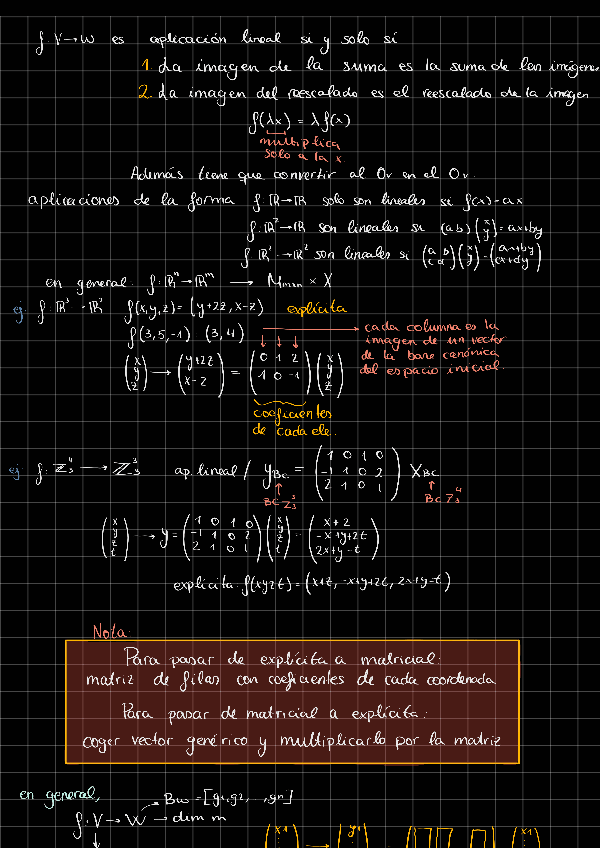 f: V → W es aplicación lineal si y solo si
1. La imagen de la suma es la suma de las imágenes
2. La imagen del reescalado es el reescalado de la imagen
f(λx) = λ f(x)
multiplica
solo a la x
Además tiene que convertir al 0v en el 0v.
aplicaciones de la forma f: ℝ→ℝ solo son lineales si f(x) = ax
f: ℝ² → ℝ son lineales si (a b) (x y) = ax+by
f: ℝ² → ℝ² son lineales si (a b / c d) (x / y) = (ax+by / cx+dy)
en general: f: ℝⁿ → ℝᵐ → Mmxn × X
ej: f: ℝ³ → ℝ² f(x,y,z) = (y+2z, x-z) explícita
f(3,5,-1) (3,4)
cada columna es la
imagen de un vector
de la base canónica
del espacio inicial.
(x / y / z) → (y+2z / x-z) = (0 1 2 / 1 0 -1) (x / y / z)
coeficientes
de cada ele.
ej: f: ℤ₃⁴ → ℤ₃³ ap. lineal / yBc = (1 0 1 0 / -1 1 0 2 / 2 1 0 1) XBc
Bc ℤ₃³ Bc ℤ₃⁴
(x / y / z / t) → y = (1 0 1 0 / -1 1 0 2 / 2 1 0 1) (x / y / z / t) = (x+z / -x+y+2t / 2x+y-t)
explícita: f(xyzt) = (x+z, -x+y+2t, 2x+y-t)
Nota:
Para pasar de explícita a matricial:
matriz de filas con coeficientes de cada coordenada
Para pasar de matricial a explícita:
coger vector genérico y multiplicarlo por la matriz
en general,
Bw = [g1, g2, ..., gn]
f: V → W → dim m
(x1 → (y1 (x1